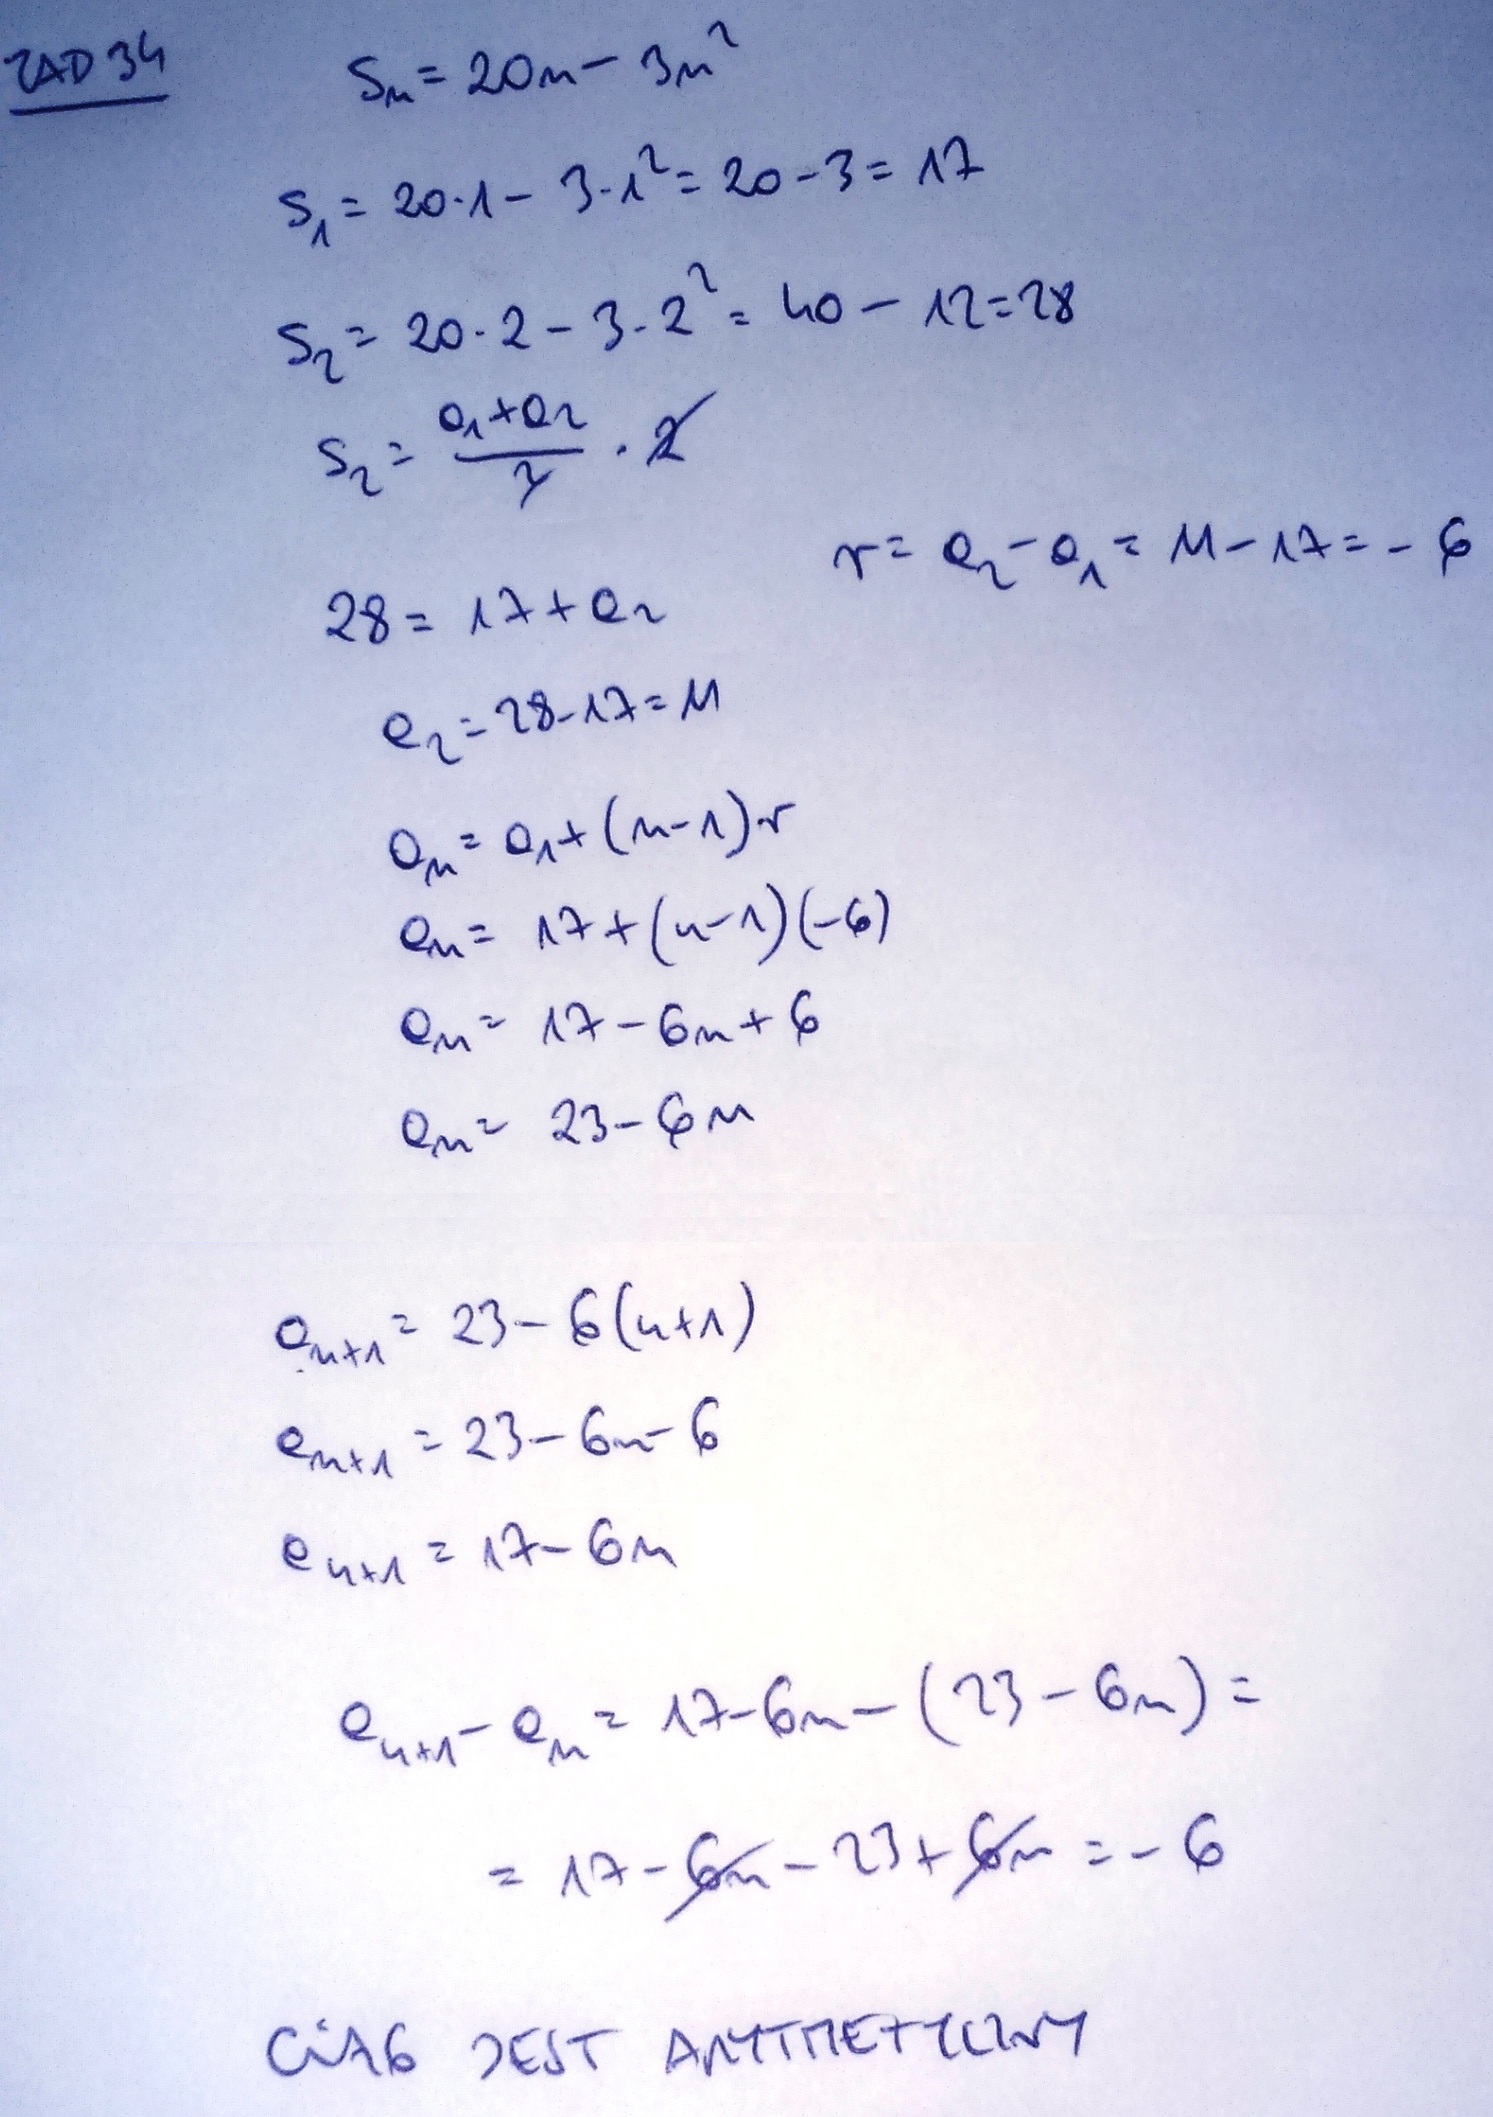 ZAD 34
Sₙ = 20n - 3n²
S₁ = 20·1 - 3·1² = 20 - 3 = 17
S₂ = 20·2 - 3·2² = 40 - 12 = 28
S₂ = (a₁+a₂)/2 · 2
r = a₂ - a₁ = 11 - 17 = -6
28 = 17 + a₂
a₂ = 28 - 17 = 11
aₙ = a₁ + (n-1)·r
aₙ = 17 + (n-1)(-6)
aₙ = 17 - 6n + 6
aₙ = 23 - 6n
aₙ₊₁ = 23 - 6(n+1)
aₙ₊₁ = 23 - 6n - 6
aₙ₊₁ = 17 - 6n
aₙ₊₁ - aₙ = 17 - 6n - (23 - 6n) =
= 17 - 6n - 23 + 6n = -6
CIĄG JEST ARYTMETYCZNY